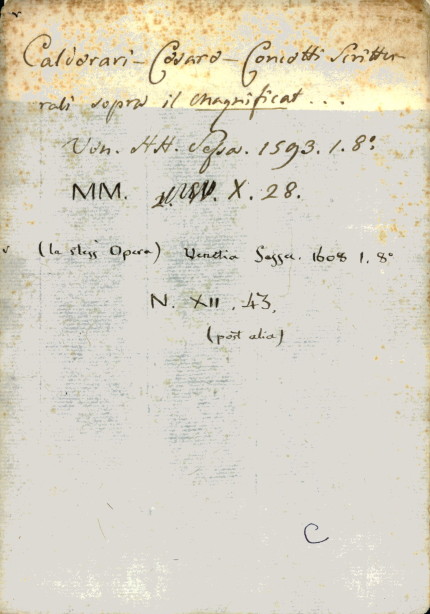 Caldorari - Cesaro - Concetti Scrittu-
rali sopra il Magnificat...
Ven. HH. Sessa. 1593. 1. 8°.
MM. X. 28.
(la stess' Opera) Venetia Sessa. 1608 1. 8°
N. XII. 43.
(post alia)
C